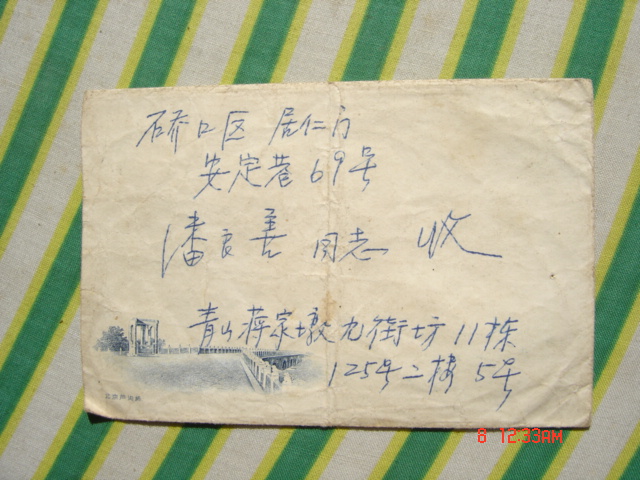 硚口区 居仁门
安定巷 69号
潘良善 同志 收
青山蒋家墩九街坊 11栋
125号二楼 5号
8 12:33AM